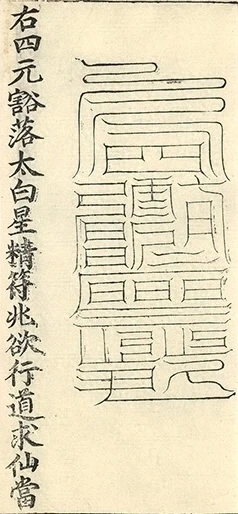 右四元豁落太白星精符兆欲行道求仙當